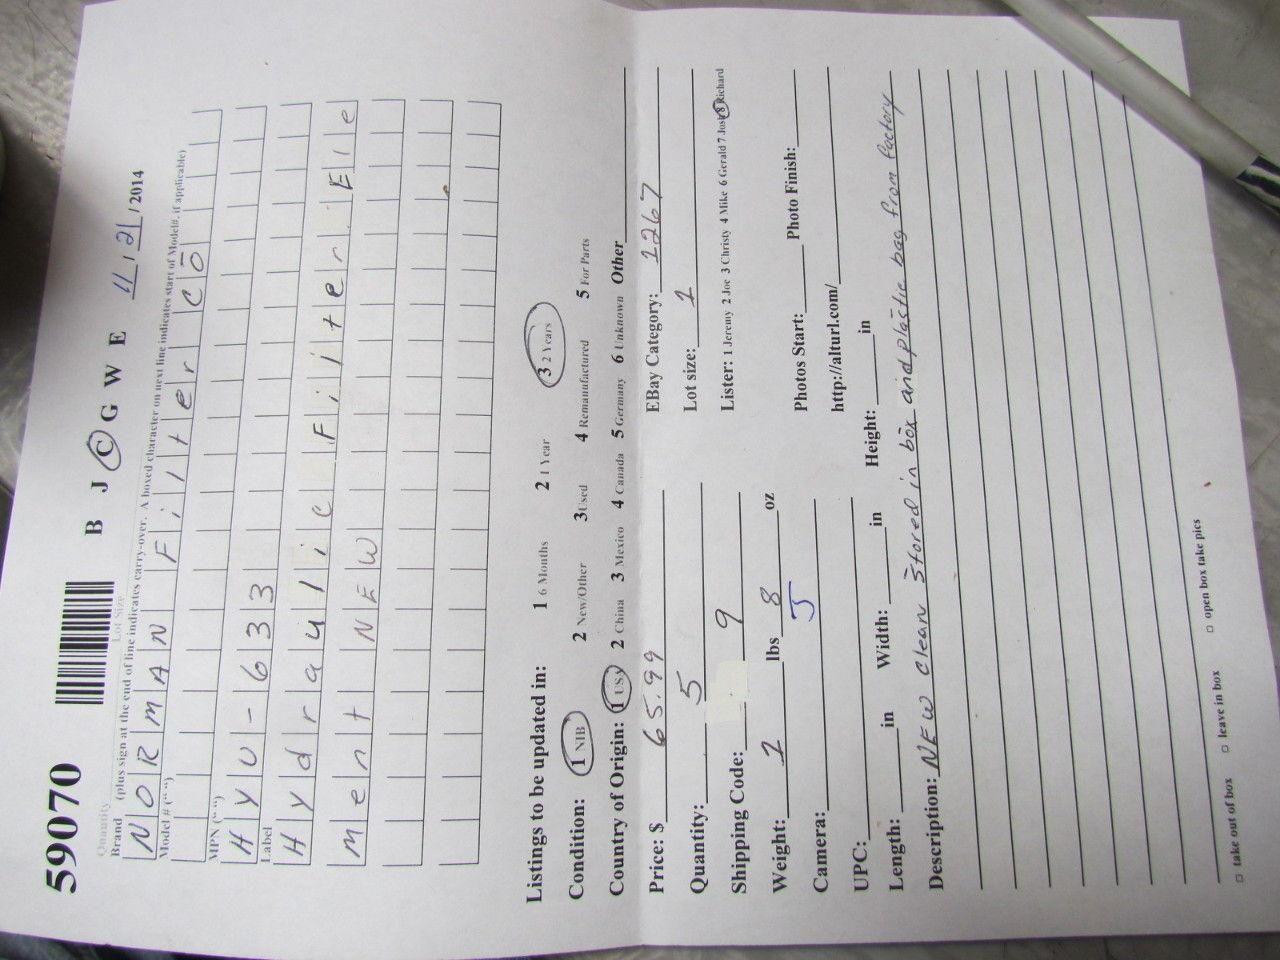 59070 B J C G W E 11/21/2014
Quantity Lot Size
Brand (plus sign at the end of line indicates carry-over. A boxed character on next line indicates start of Model#, if applicable)
NORMAN Filter CO
Model # (" ")
MPN (" ")
HYU-633
Label
Hydraulic Filter Ele
ment NEW
Listings to be updated in: 1 6 Months 2 1 Year 3 2 Years
Condition: 1 NIB 2 New/Other 3 Used 4 Remanufactured 5 For Parts
Country of Origin: 1 USA 2 China 3 Mexico 4 Canada 5 Germany 6 Unknown Other
Price: $ 65.99 EBay Category: 1267
Quantity: 5 Lot size: 1
Shipping Code: 9 Lister: 1 Jeremy 2 Joe 3 Christy 4 Mike 6 Gerald 7 Josh 8 Richard
Weight: 1 lbs 8 oz Photos Start: Photo Finish:
Camera: 5 http://alturl.com/
UPC: Height: in
Length: in Width: in
Description: NEW Clean Stored in box and plastic bag from factory
□ take out of box □ leave in box □ open box take pics